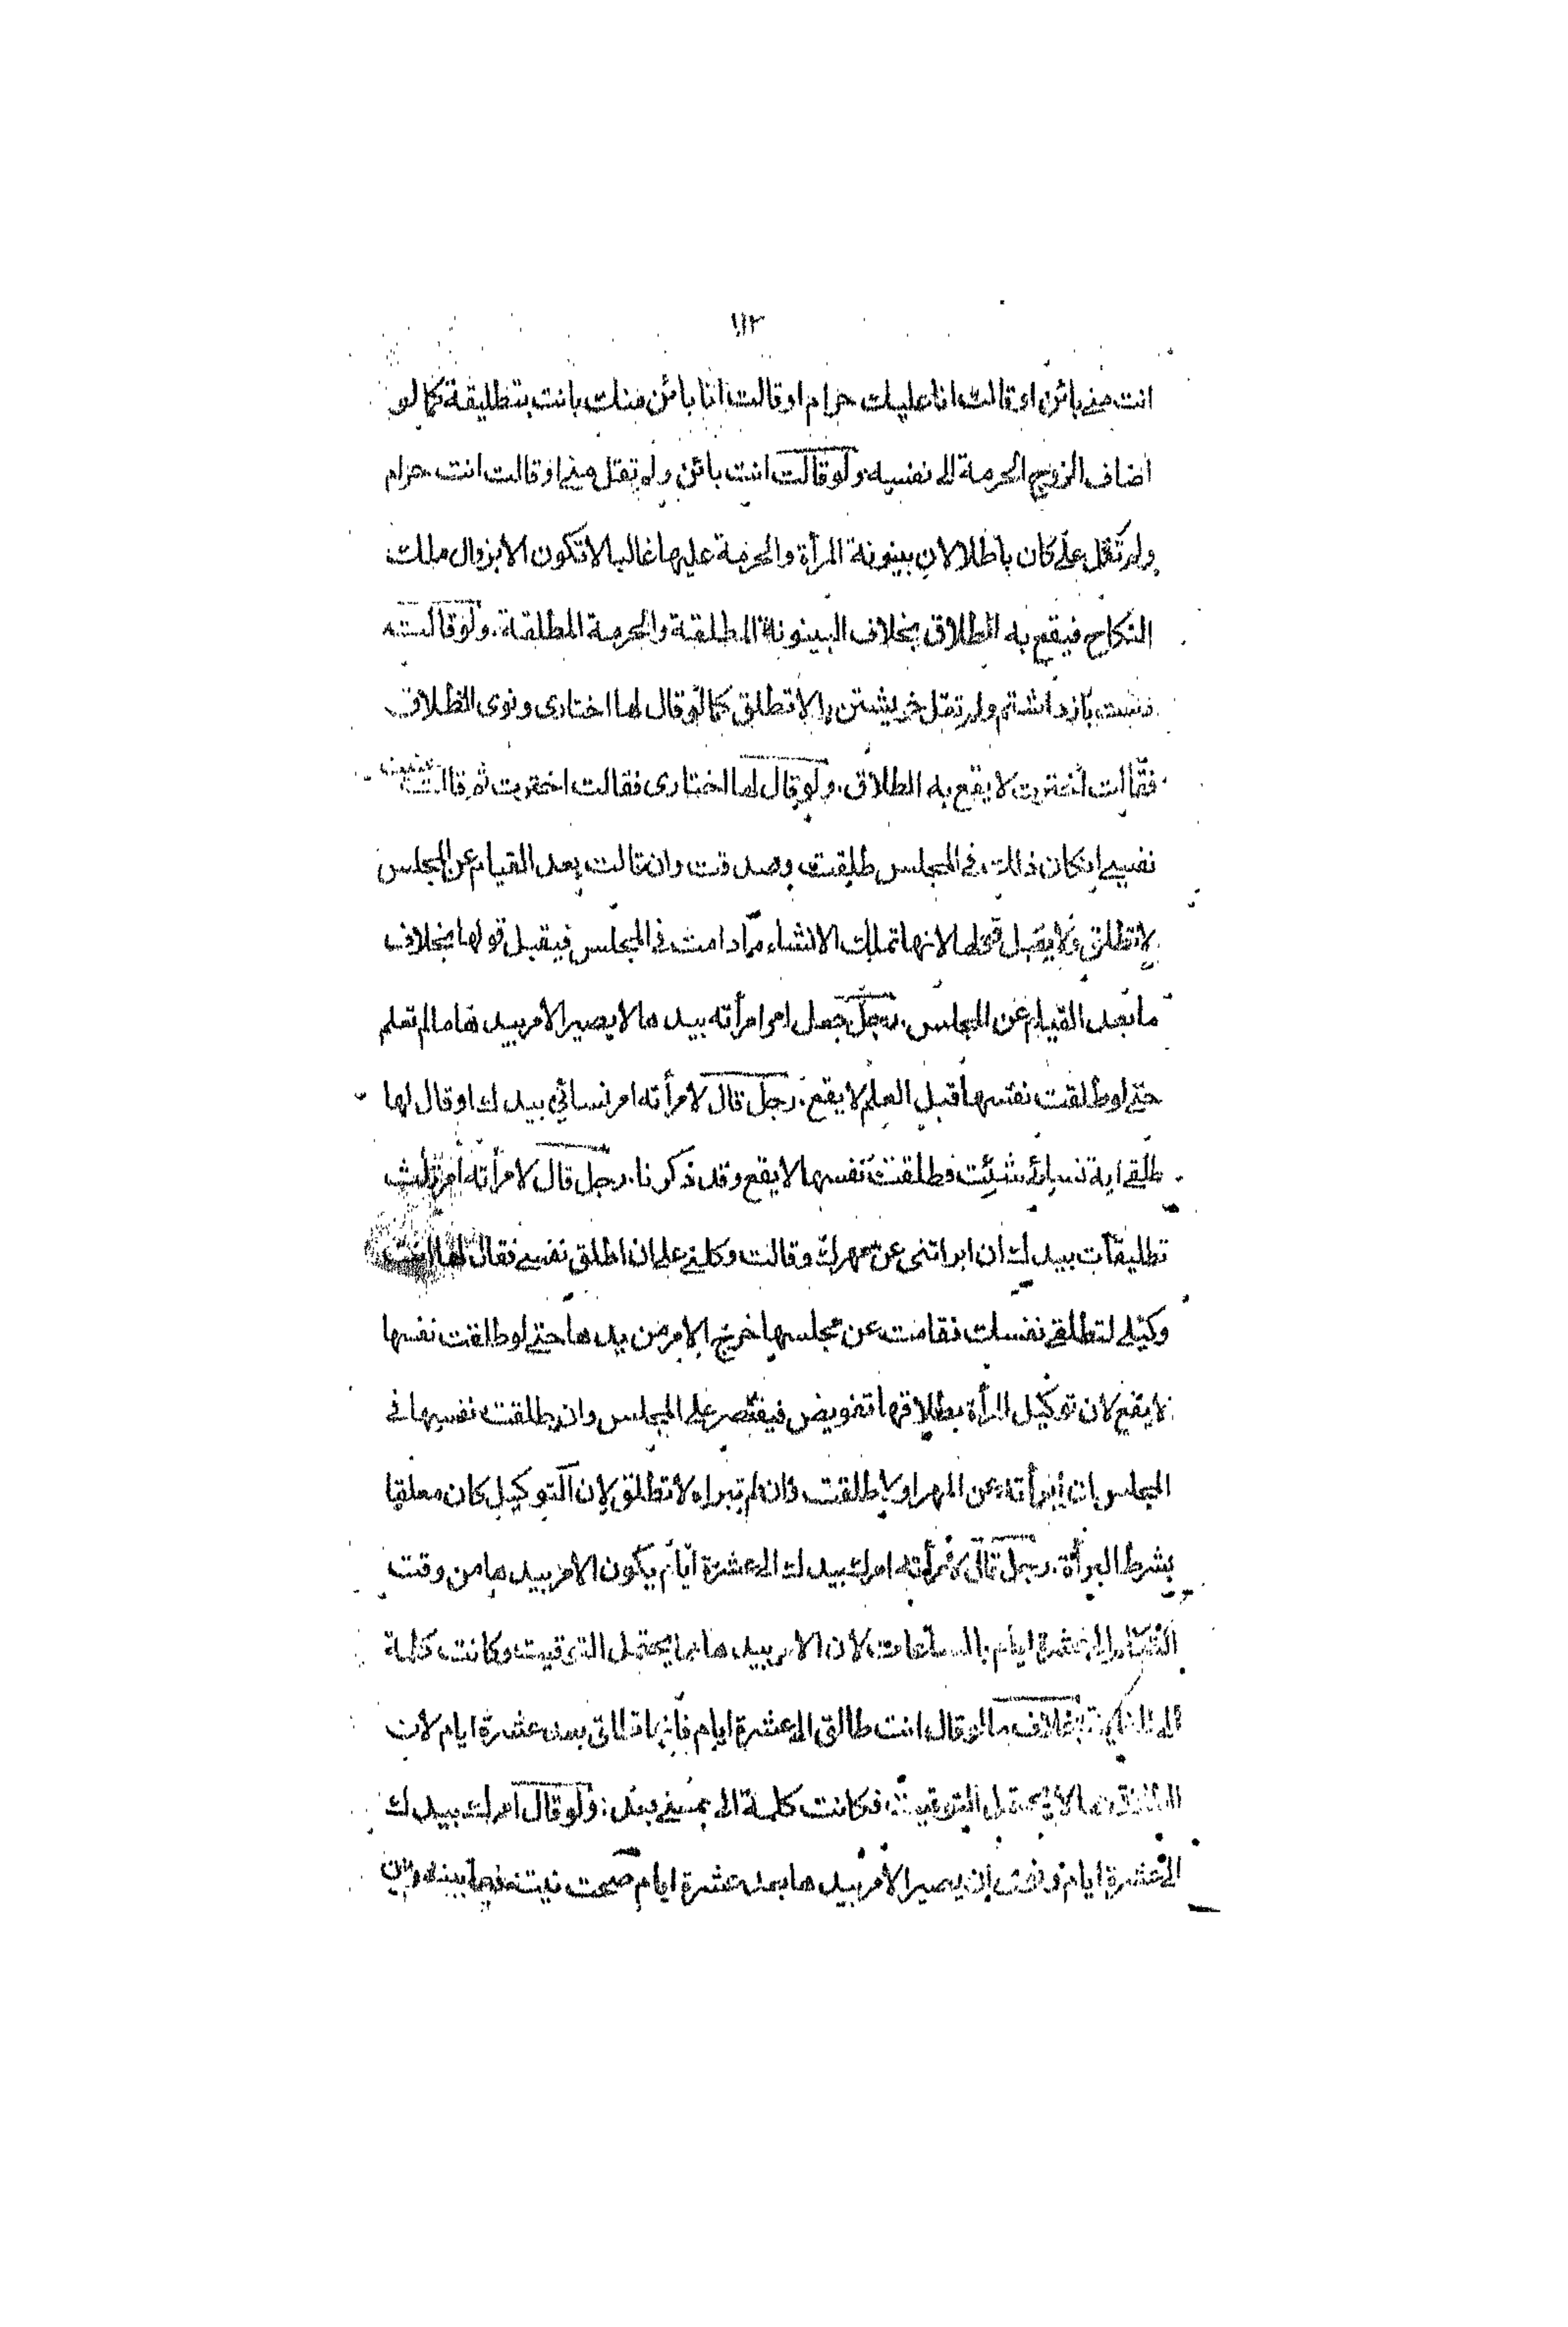 ١١٢
انت مني بائن او قالت انا عليك حرام او قالت انا بائن منك بانت بتطليقة كما لو
اضاف الزوج الحرمة الى نفسه ولو قالت انت بائن ولم تقل مني او قالت انت حرام
ولم تقل علي كان باطلا لان بينونة المرأة والحرمة عليها غالبا لا تكون الا بزوال ملك
النكاح فيقع به الطلاق بخلاف البينونة المطلقة والحرمة المطلقة. ولو قالت
دست بازداشتم ولم تقل خويشتن را لا تطلق كما لو قال لها اختارى ونوى الطلاق
فقالت اخترت لا يقع به الطلاق. ولو قال لها اختارى فقالت اخترت ثم قالت عنيت
نفسي ان كان ذلك في المجلس طلقت وصدقت وان قالت بعد القيام عن المجلس
لا تطلق ولا يقبل قولها لانها تملك الانشاء ما دامت في المجلس فيقبل قولها بخلاف
ما بعد القيام عن المجلس. رجل جعل امر امرأته بيدها لا يصير الامر بيدها ما لم تعلم
حتى لو طلقت نفسها قبل العلم لا يقع. رجل قال لامرأته امر نسائي بيدك او قال لها
طلقي اية نسائي شئت فطلقت نفسها لا يقع وقد ذكرنا. رجل قال لامرأته امر ثلث
تطليقات بيدك ان ابراتنى عن مهرك وقالت وكلني على ان اطلق نفسي فقال لها انت
وكيلي لتطلقي نفسك فقامت عن مجلسها خرج الامر من يدها حتى لو طلقت نفسها
لا يقع لان توكيل المرأة بطلاقها تفويض فيقتصر على المجلس وان طلقت نفسها في
المجلس ان ابرأته عن المهر اولا طلقت وان لم تبراه لا تطلق لان التوكيل كان معلقا
بشرط البرأة. رجل قال لامرأته امرك بيدك الى عشرة ايام يكون الامر بيدها من وقت
التكلم الى عشرة ايام بالساعات لان الامر بيدها مما يحتمل التوقيت وكانت كلمة
الى للغاية بخلاف ما لو قال انت طالق الى عشرة ايام فانها تطلق بعد عشرة ايام لان
الطلاق مما لا يحتمل التوقيت فكانت كلمة الى بمعنى بعد. ولو قال امرك بيدك
الى عشرة ايام ونوى ان يصير الامر بيدها بعد عشرة ايام صحت نيته فيما بينه وبين